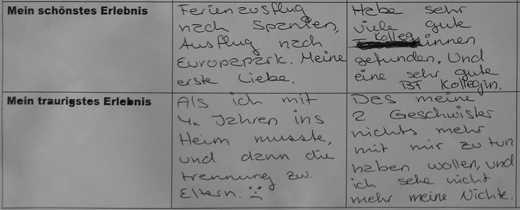 Mein schönstes Erlebnis
Ferienausflug
nach Spanien,
Ausflug nach
Europapark. Meine
erste Liebe.
Habe sehr
viele gute
Kolleginnen
gefunden. Und
eine sehr gute
BF Kollegin.
Mein traurigstes Erlebnis
Als ich mit
4. Jahren ins
Heim musste,
und dann die
trennung zw.
Eltern.
Das meine
2 Geschwister
nichts mehr
mit mir zu tun
haben wollen, und
ich sehe nicht
mehr meine Nichte.